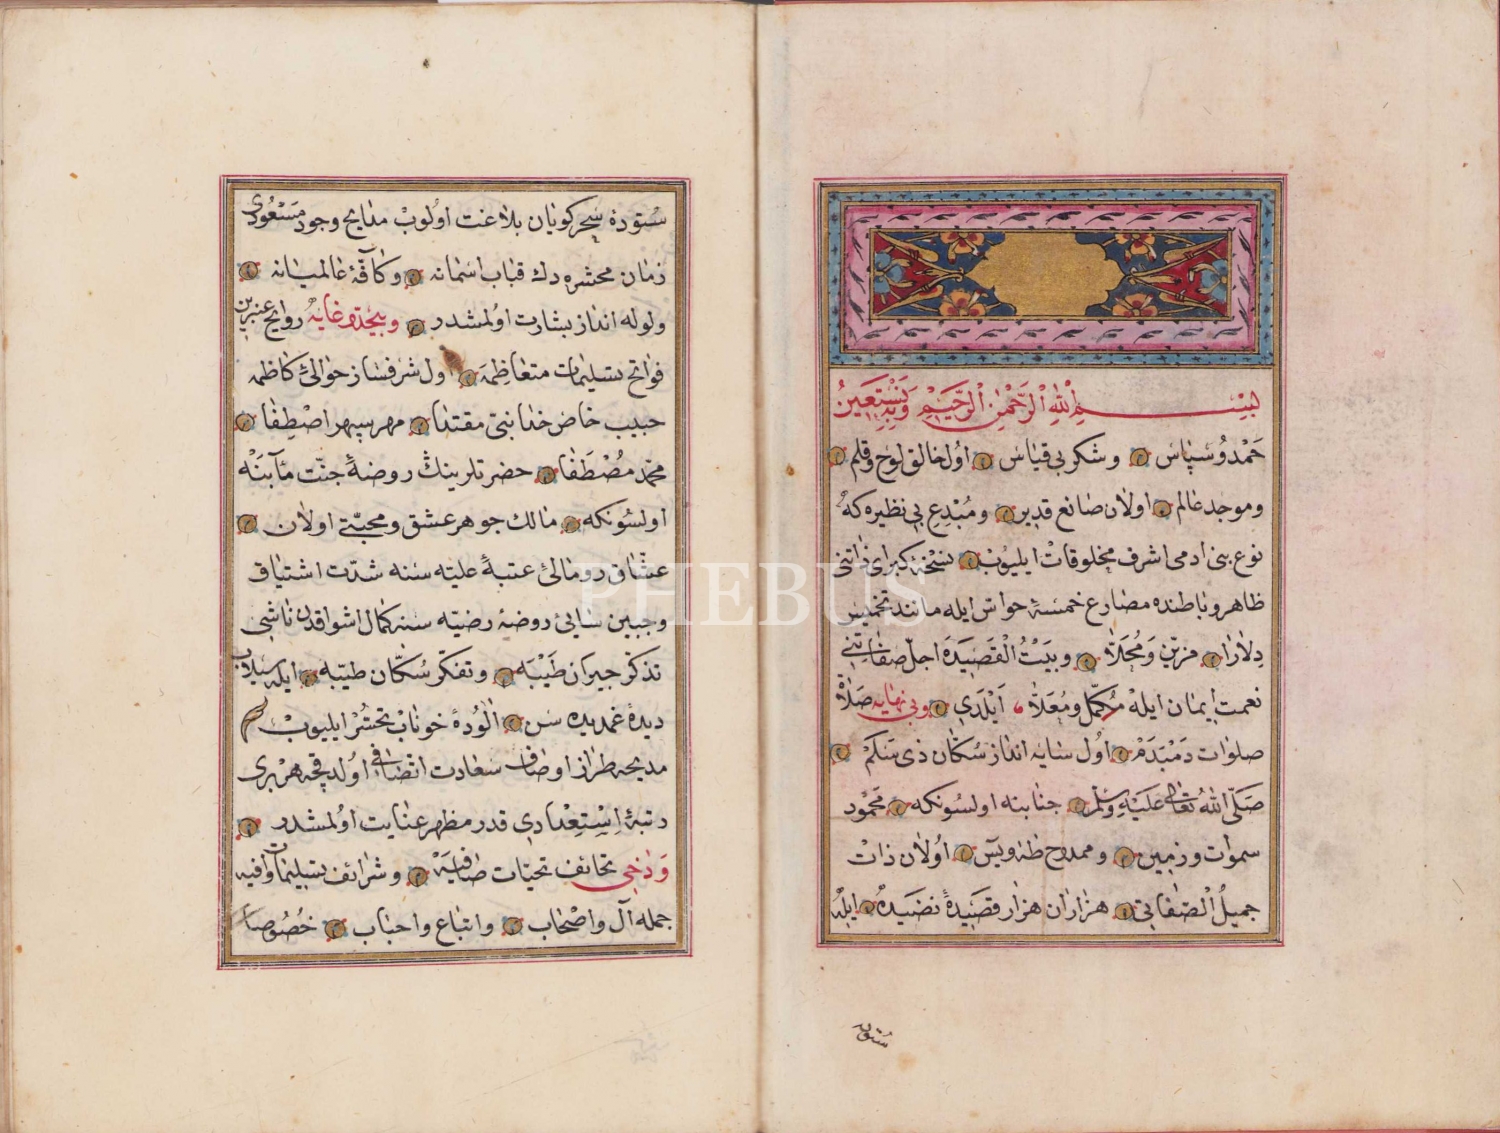 بِسْمِ اللّٰهِ الرَّحْمٰنِ الرَّحِيْمِ وَبِهِ نَسْتَعِينُ
حَمْدُ وُسِپَاس وشكر بی قیاس اول خالق لوح وقلم
وموجد عالم اولان صانع قدیر ومُبْدِعِ بی نظیره که
نوع بنی ادمی اشرف مخلوقات ایلیوب نسْخهٔ کبرای ذاتنی
ظاهر وباطنده مصارع خمسهٔ حواس ایله مانند تخمیس
دِلاٰرا مزین وَمُجَلاّ وبَيْتُ الْقَصِيدَه اجلّ صفاتنی
نعمت ایمان ایله مُكمّل ومُعَلاّ اَیْلَدی وبی نهایه صَلاٰة
صلوات دَمْبَدَمْ اول سایه انداز سُكّان ذی سَلَم
صَلّی اللّٰهُ تعالی عَلَيْهِ وسَلّم جنابنه اولسُونكه محمُود
سموات وزمین وممدوح طه ویس اوُلان ذات
جمیلُ الْصّفاتی هزاران هزار قصیدهٔ نضیده ایله
ستوده
سُتوده سحر كویان بلاغت اوُلوبْ مدایح وجود مَسْعُودی
زمان محشره دك قباب اسمانه وكافّهٔ عالمیانه
ولوله انداز بشارت اوُلمشدر وبیحدّ وغایهْ روایح عنبرین
فواتح تسلیمات متعاظِمَه اول شرفساز حوالیٔ كاظمه
حبیب خاص خدا نبیّ مقتدا مهر سپهر اصْطِفا
محمّد مُصْطَفا حضرتلرینك روضهٔ جنّت مآبنه
اولسُونكه مالك جوهر عشق ومحبّتی اولان
عشّاق رومالیٔ عتبهٔ علیّه سنه شدّت اشتیاق
وجبین سایٔ روضهٔ رضیّه سنه كمال اشواقدن ناشی
تذكّر جیران طَیْبَه وتفكّر سُكّان طیّبه ایله سیلاب
دیدهٔ غمدیده سن الودهٔ خوناب تحسّر ایلیوب
مدیحه طراز اوصاف سعادت اتّصافی اوُلدقجه هر بری
رتبهٔ اِسْتِعْدادی قدر مظهر عنایت اوُلمشدر
وَدَخی تحائف تحیّات صافیَه وشرائف تسلیمات وافیه
جمله آل واصْحاب واتباع واحباب خصُوصا
PHEBUS